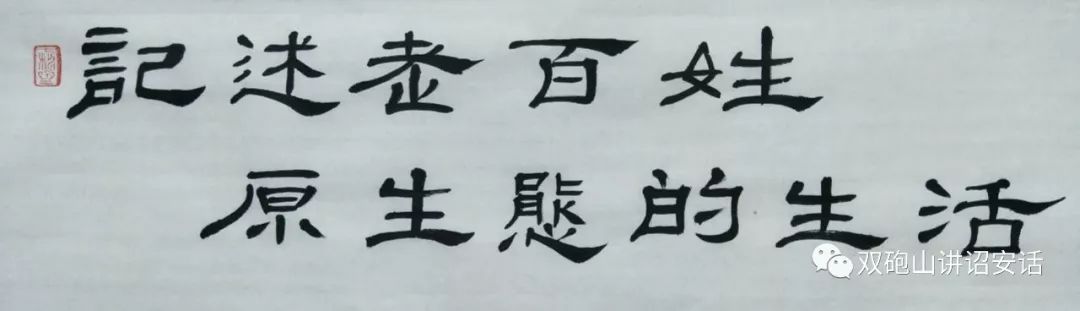 記述老百姓
原生態的生活
双砲山讲诏安话